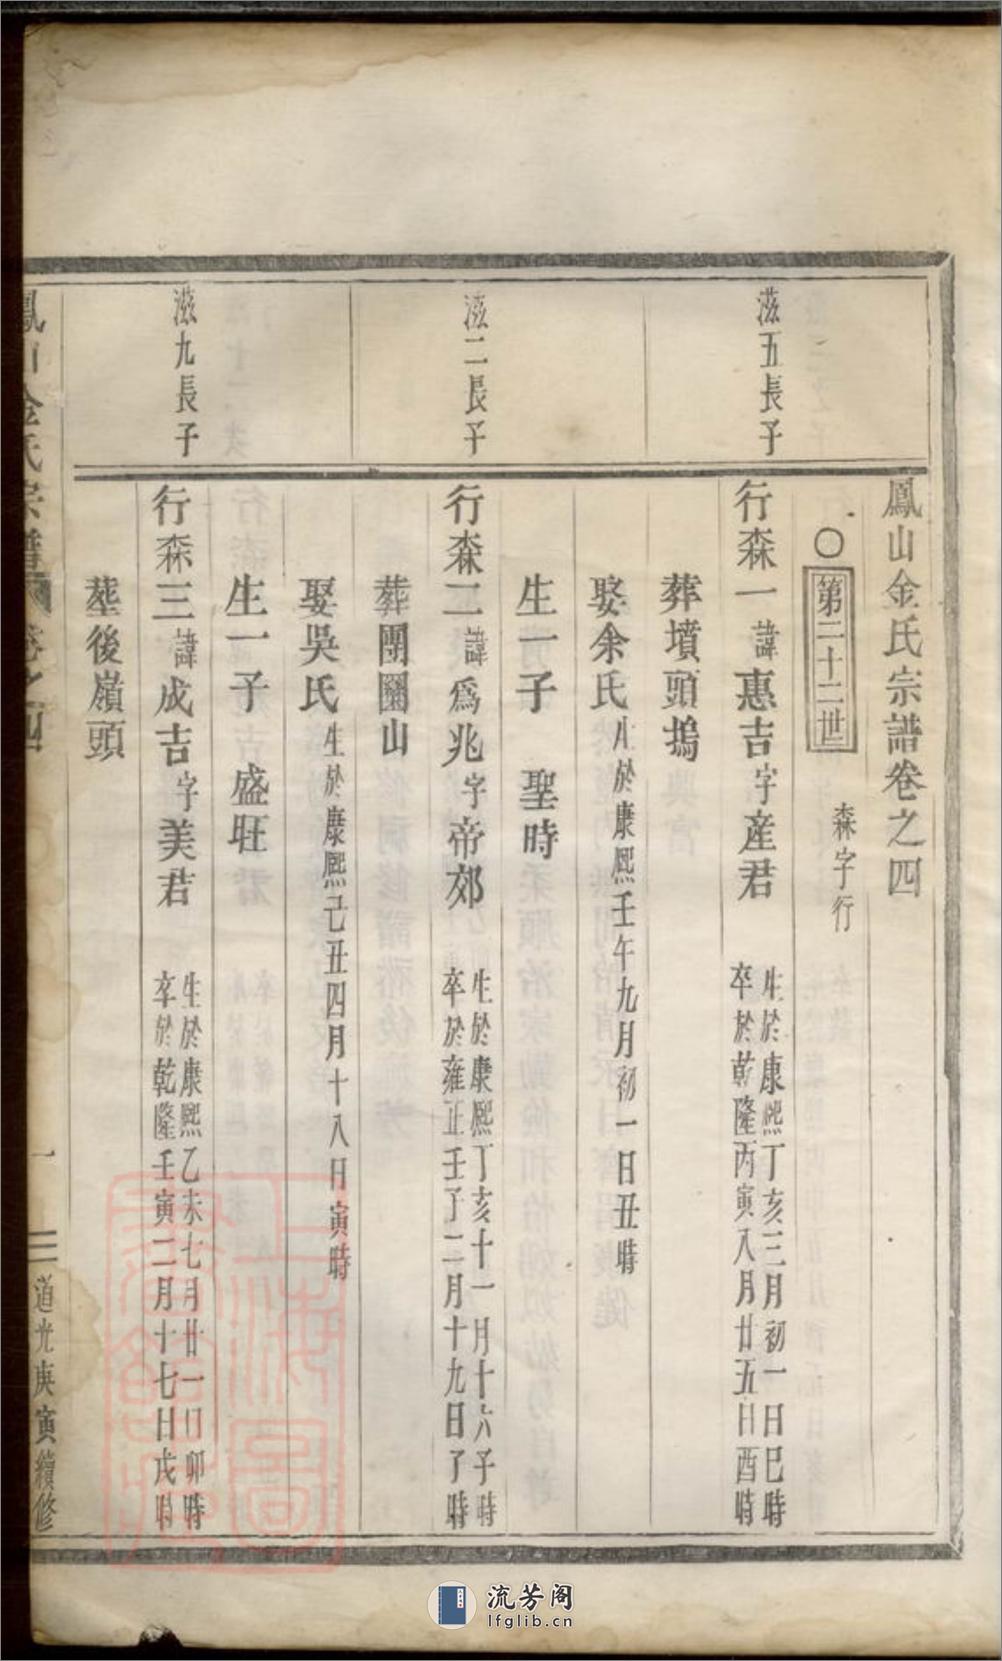 鳳山金氏宗譜卷之四
○第二十二世
森字行
滋五長子
行森一諱惠吉字産君
生於康熙丁亥三月初一日巳時
卒於乾隆丙寅八月廿五日酉時
葬墳頭塢
娶余氏生於康熙壬午九月初一日丑時
生一子 聖時
滋二長子
行森二諱為兆字帝郊
生於康熙丁亥十一月十六子時
卒於雍正壬子二月十九日子時
葬團圞山
娶吳氏生於康熙己丑四月十八日寅時
生一子 盛旺
滋九長子
行森三諱成吉字美君
生於康熙乙未七月廿一日卯時
卒於乾隆壬寅二月十七日戌時
塟後嶺頭
鳳山金氏宗譜
卷之四
一
三
道光庚寅續修
流芳阁
lfglib.cn